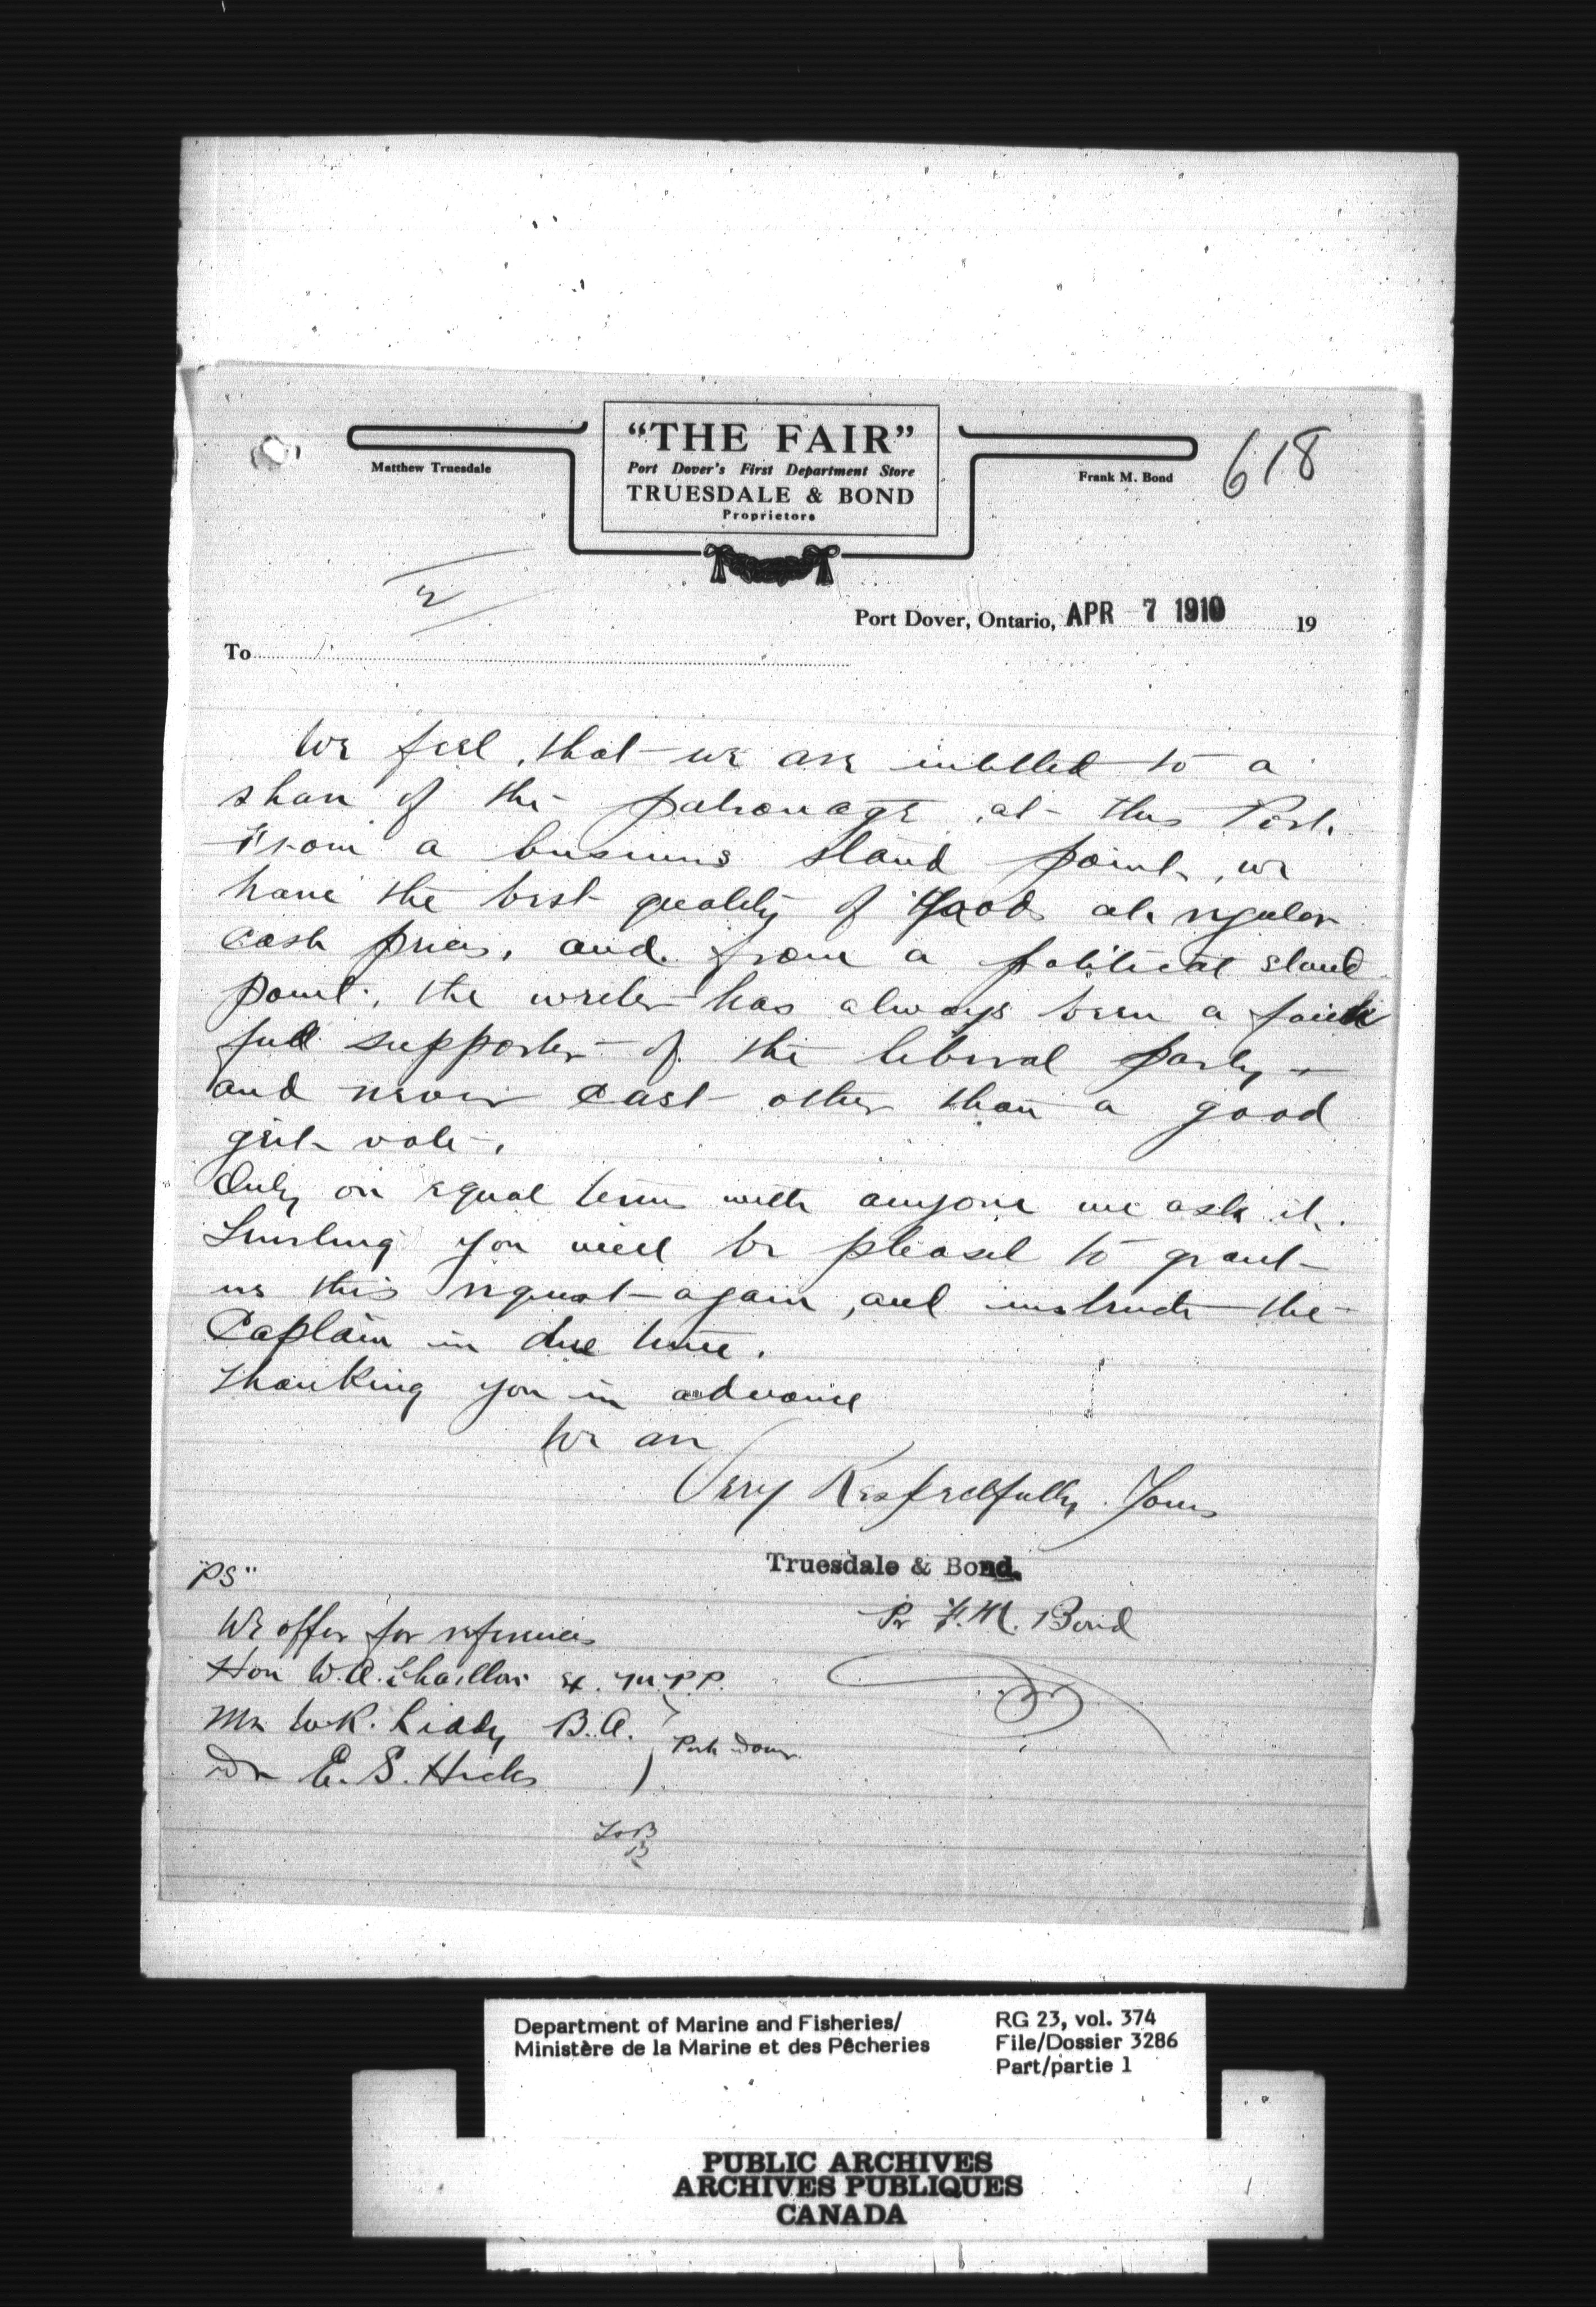 618
"THE FAIR"
Port Dover's First Department Store
TRUESDALE & BOND
Proprietors
Matthew Truesdale
Frank M. Bond
2
Port Dover, Ontario, APR 7 1910 19
To
We feel, that we are intitled to a
share of the patronage at this Port.
From a business stand point, we
have the best quality of goods at regular
cash prices, and from a political stand
point, the writer has always been a faith
full supporter of the liberal party
and never cast other than a good
grit vote.
Only on equal terms with anyone we ask it.
Trusting you will be pleased to grant
us this request again, and instruct the
Captain in due time.
Thanking you in advance
We are
Very Respectfully Yours
Truesdale & Bond.
Per F. M. Bond
"PS"
We offer for references
Hon W. A. Ex. M.P.P.
Mr W. R. Liddy B.A.
Port Dover
Dr E. S. Hicks
Department of Marine and Fisheries/
Ministère de la Marine et des Pêcheries
RG 23, vol. 374
File/Dossier 3286
Part/partie 1
PUBLIC ARCHIVES
ARCHIVES PUBLIQUES
CANADA